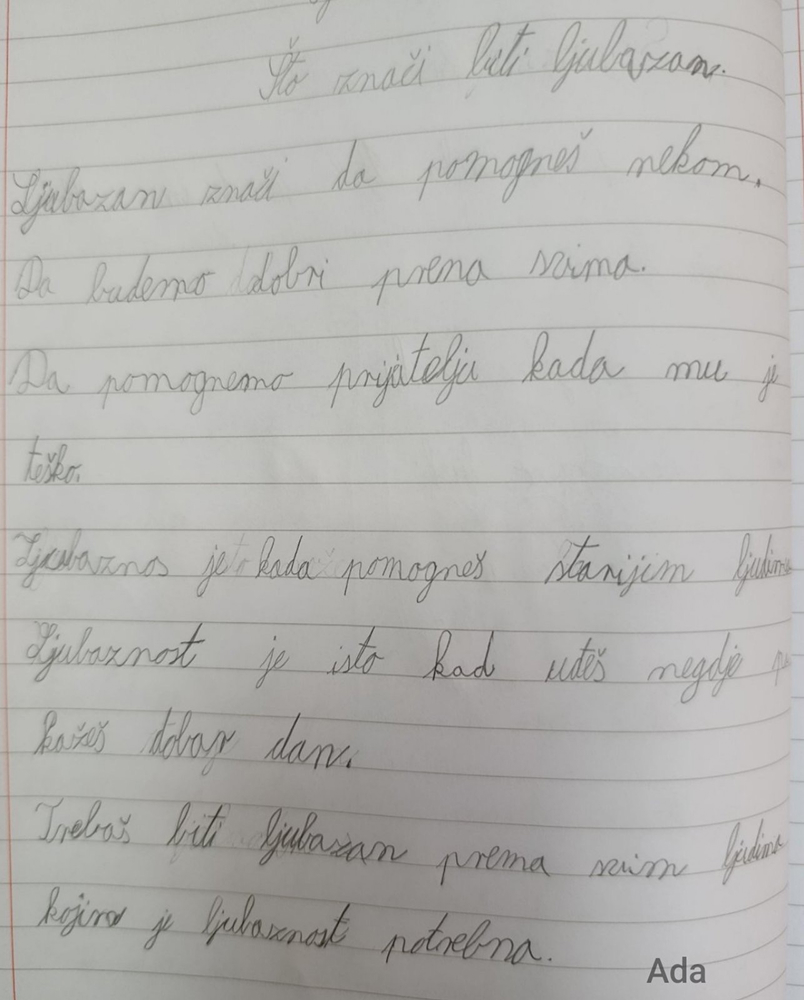 Što znači biti ljubazan.
Ljubazan znači da pomogneš nekom.
Da budemo dobri prema svima.
Da pomognemo prijatelju kada mu je
teško.
Ljubaznos je kada pomogneš starijim ljudima
Ljubaznost je isto kad uđeš negdje pa
kažeš dobar dan.
Trebaš biti ljubazan prema svim ljudima
kojima je ljubaznost potrebna.
Ada